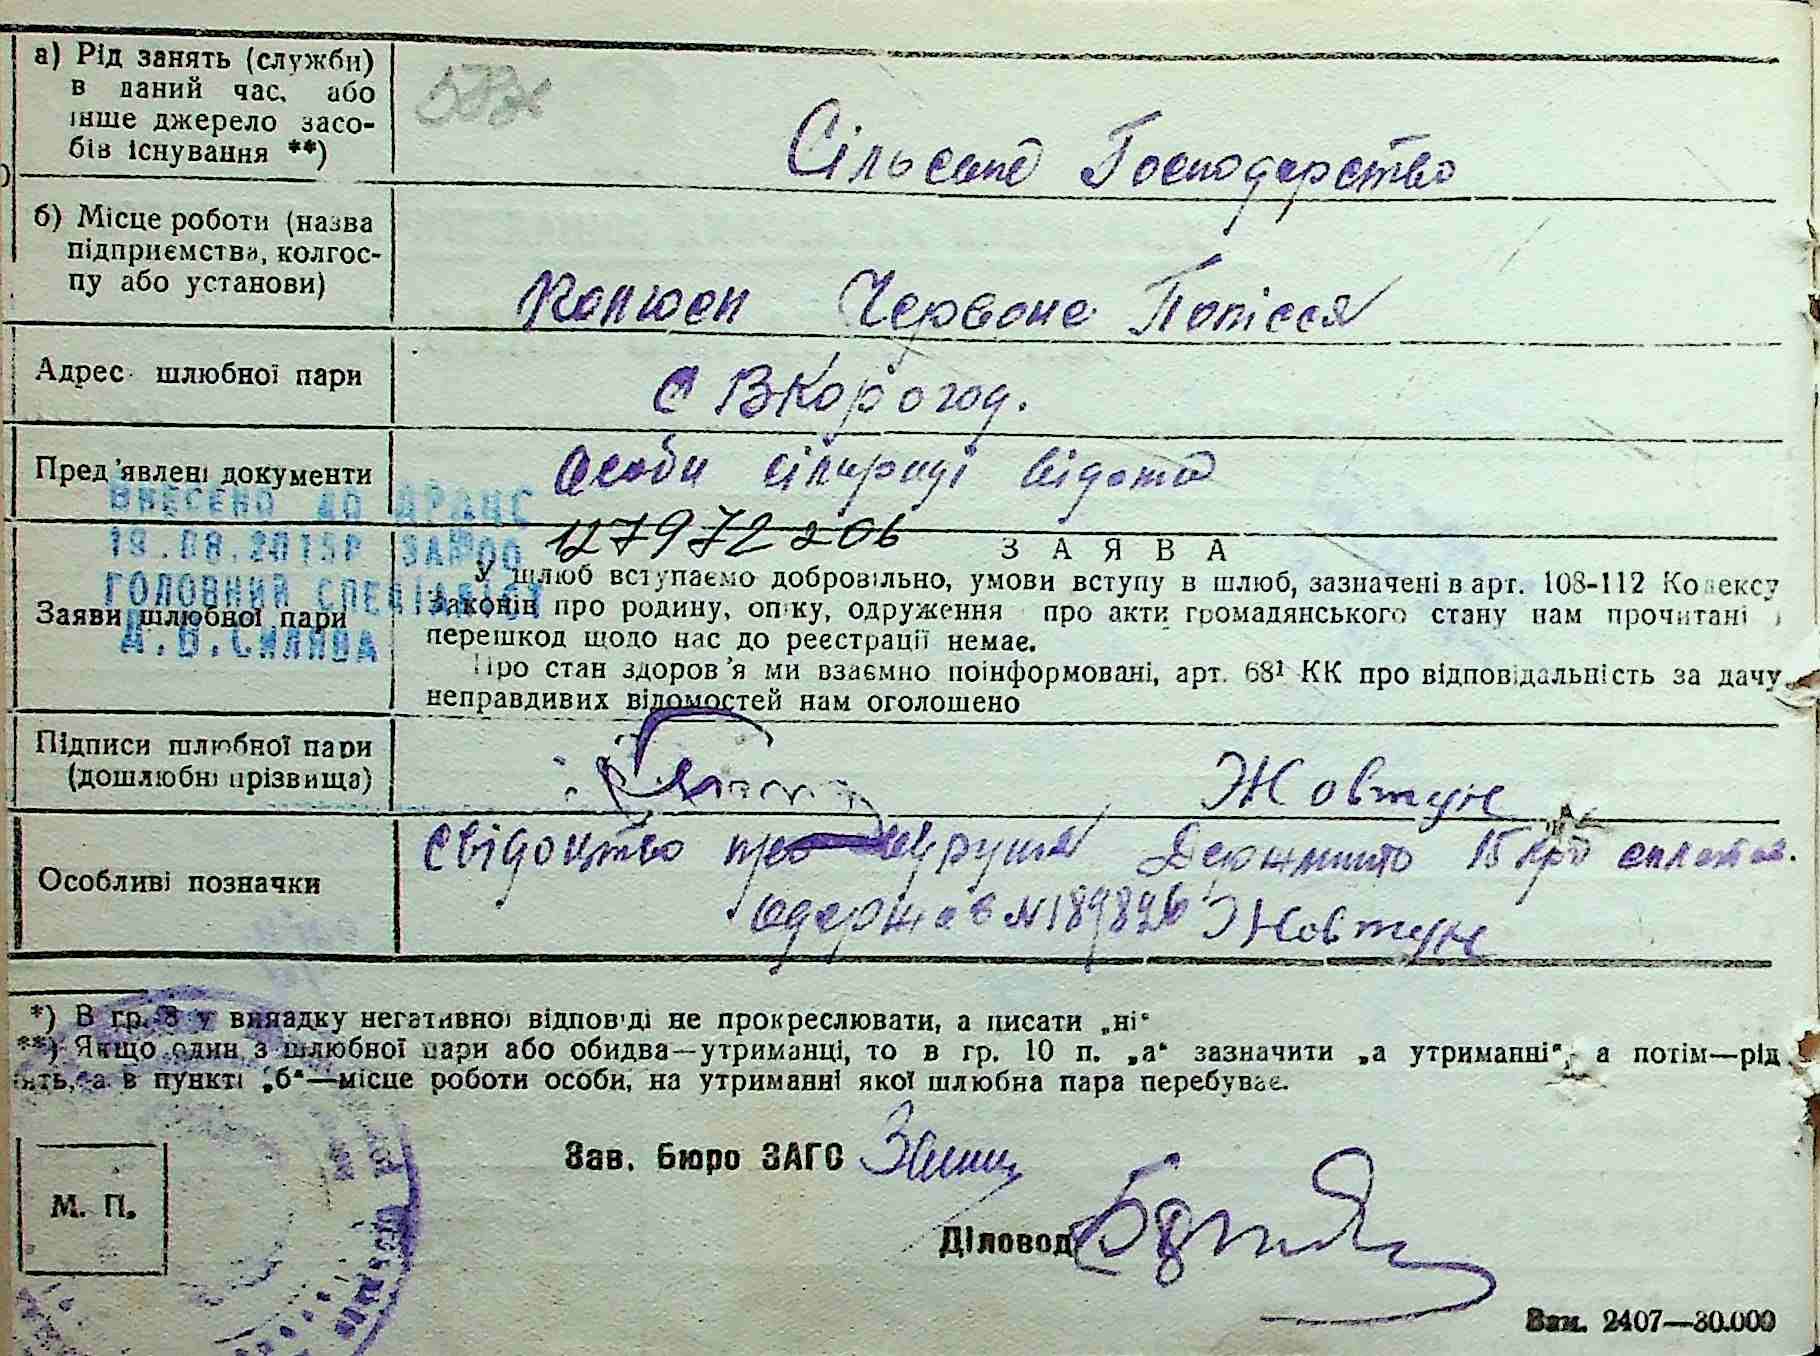 а) Рід занять (служби)
в даний час, або
інше джерело засо-
бів існування **)
Господерство
б) Місце роботи (назва
підприємства, колгос-
пу або установи)
Червоне Полісся
Адрес шлюбної пари
с ВКорогод.
Пред'явлені документи
Особи
ВНЕСЕНО ДО ДРАЦС
127972206
ЗАЯВА
ГОЛОВНИЙ СПЕЦІАЛІСТ
Заяви шлюбної пари
У шлюб вступаємо добровільно, умови вступу в шлюб, зазначені в арт. 108-112 Кодексу
Законів про родину, опіку, одруження про акти громадянського стану нам прочитані
перешкод щодо нас до реєстрації немає.
Про стан здоров'я ми взаємно поінформовані, арт. 68¹ КК про відповідальність за дачу
неправдивих відомостей нам оголошено
Підписи шлюбної пари
(дошлюбні прізвища)
Жовтун
Особливі позначки
Свідоцтво про Держмито 15 про
одержав № Жовтун
*) В гр. 8 у випадку негативної відповіді не прокреслювати, а писати „ні“
**) Якщо один з шлюбної пари або обидва—утриманці, то в гр. 10 п. „а“ зазначити „а утриманні“, а потім—рід
ять, а в пункті „б“—місце роботи особи, на утриманні якої шлюбна пара перебуває.
Зав. бюро ЗАГС
М. П.
Діловод
Зам. 2407—30.000